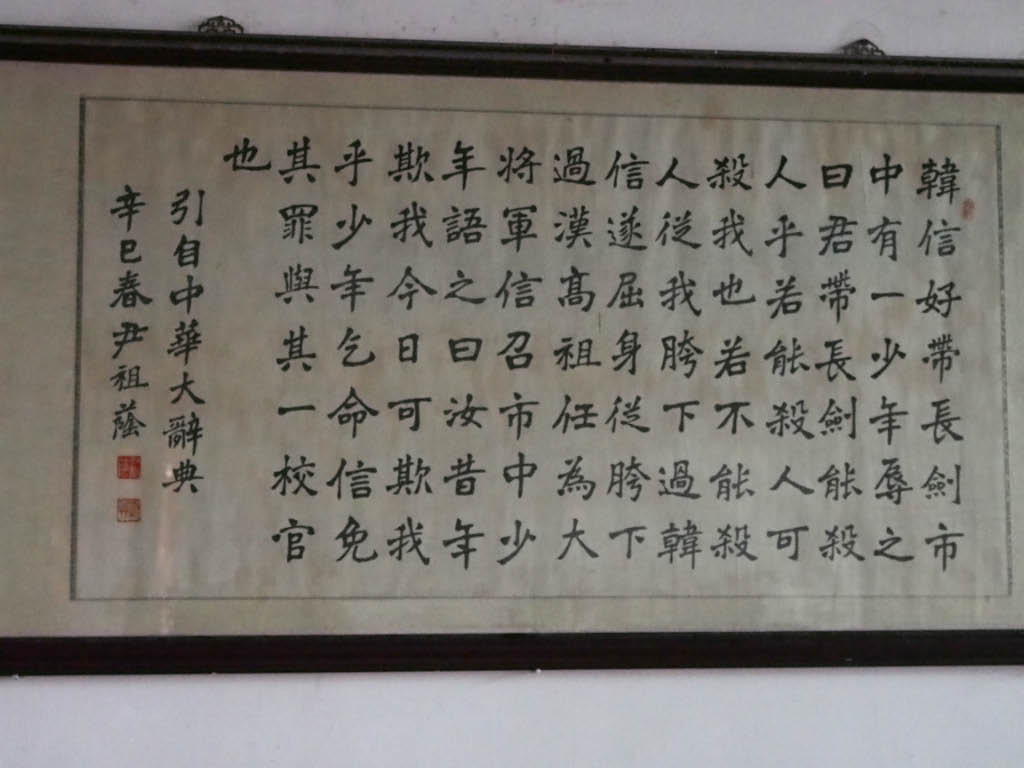 韓信好帶長劍市
中有一少年辱之
曰君帶長劍能殺
人乎若能殺人可
殺我也若不能殺
人從我胯下過韓
信遂屈身從胯下
過漢高祖任為大
將軍信召市中少
年語之曰汝昔年
欺我今日可欺我
乎少年乞命信免
其罪與其一校官
也
引自中華大辭典
辛巳春尹祖蔭